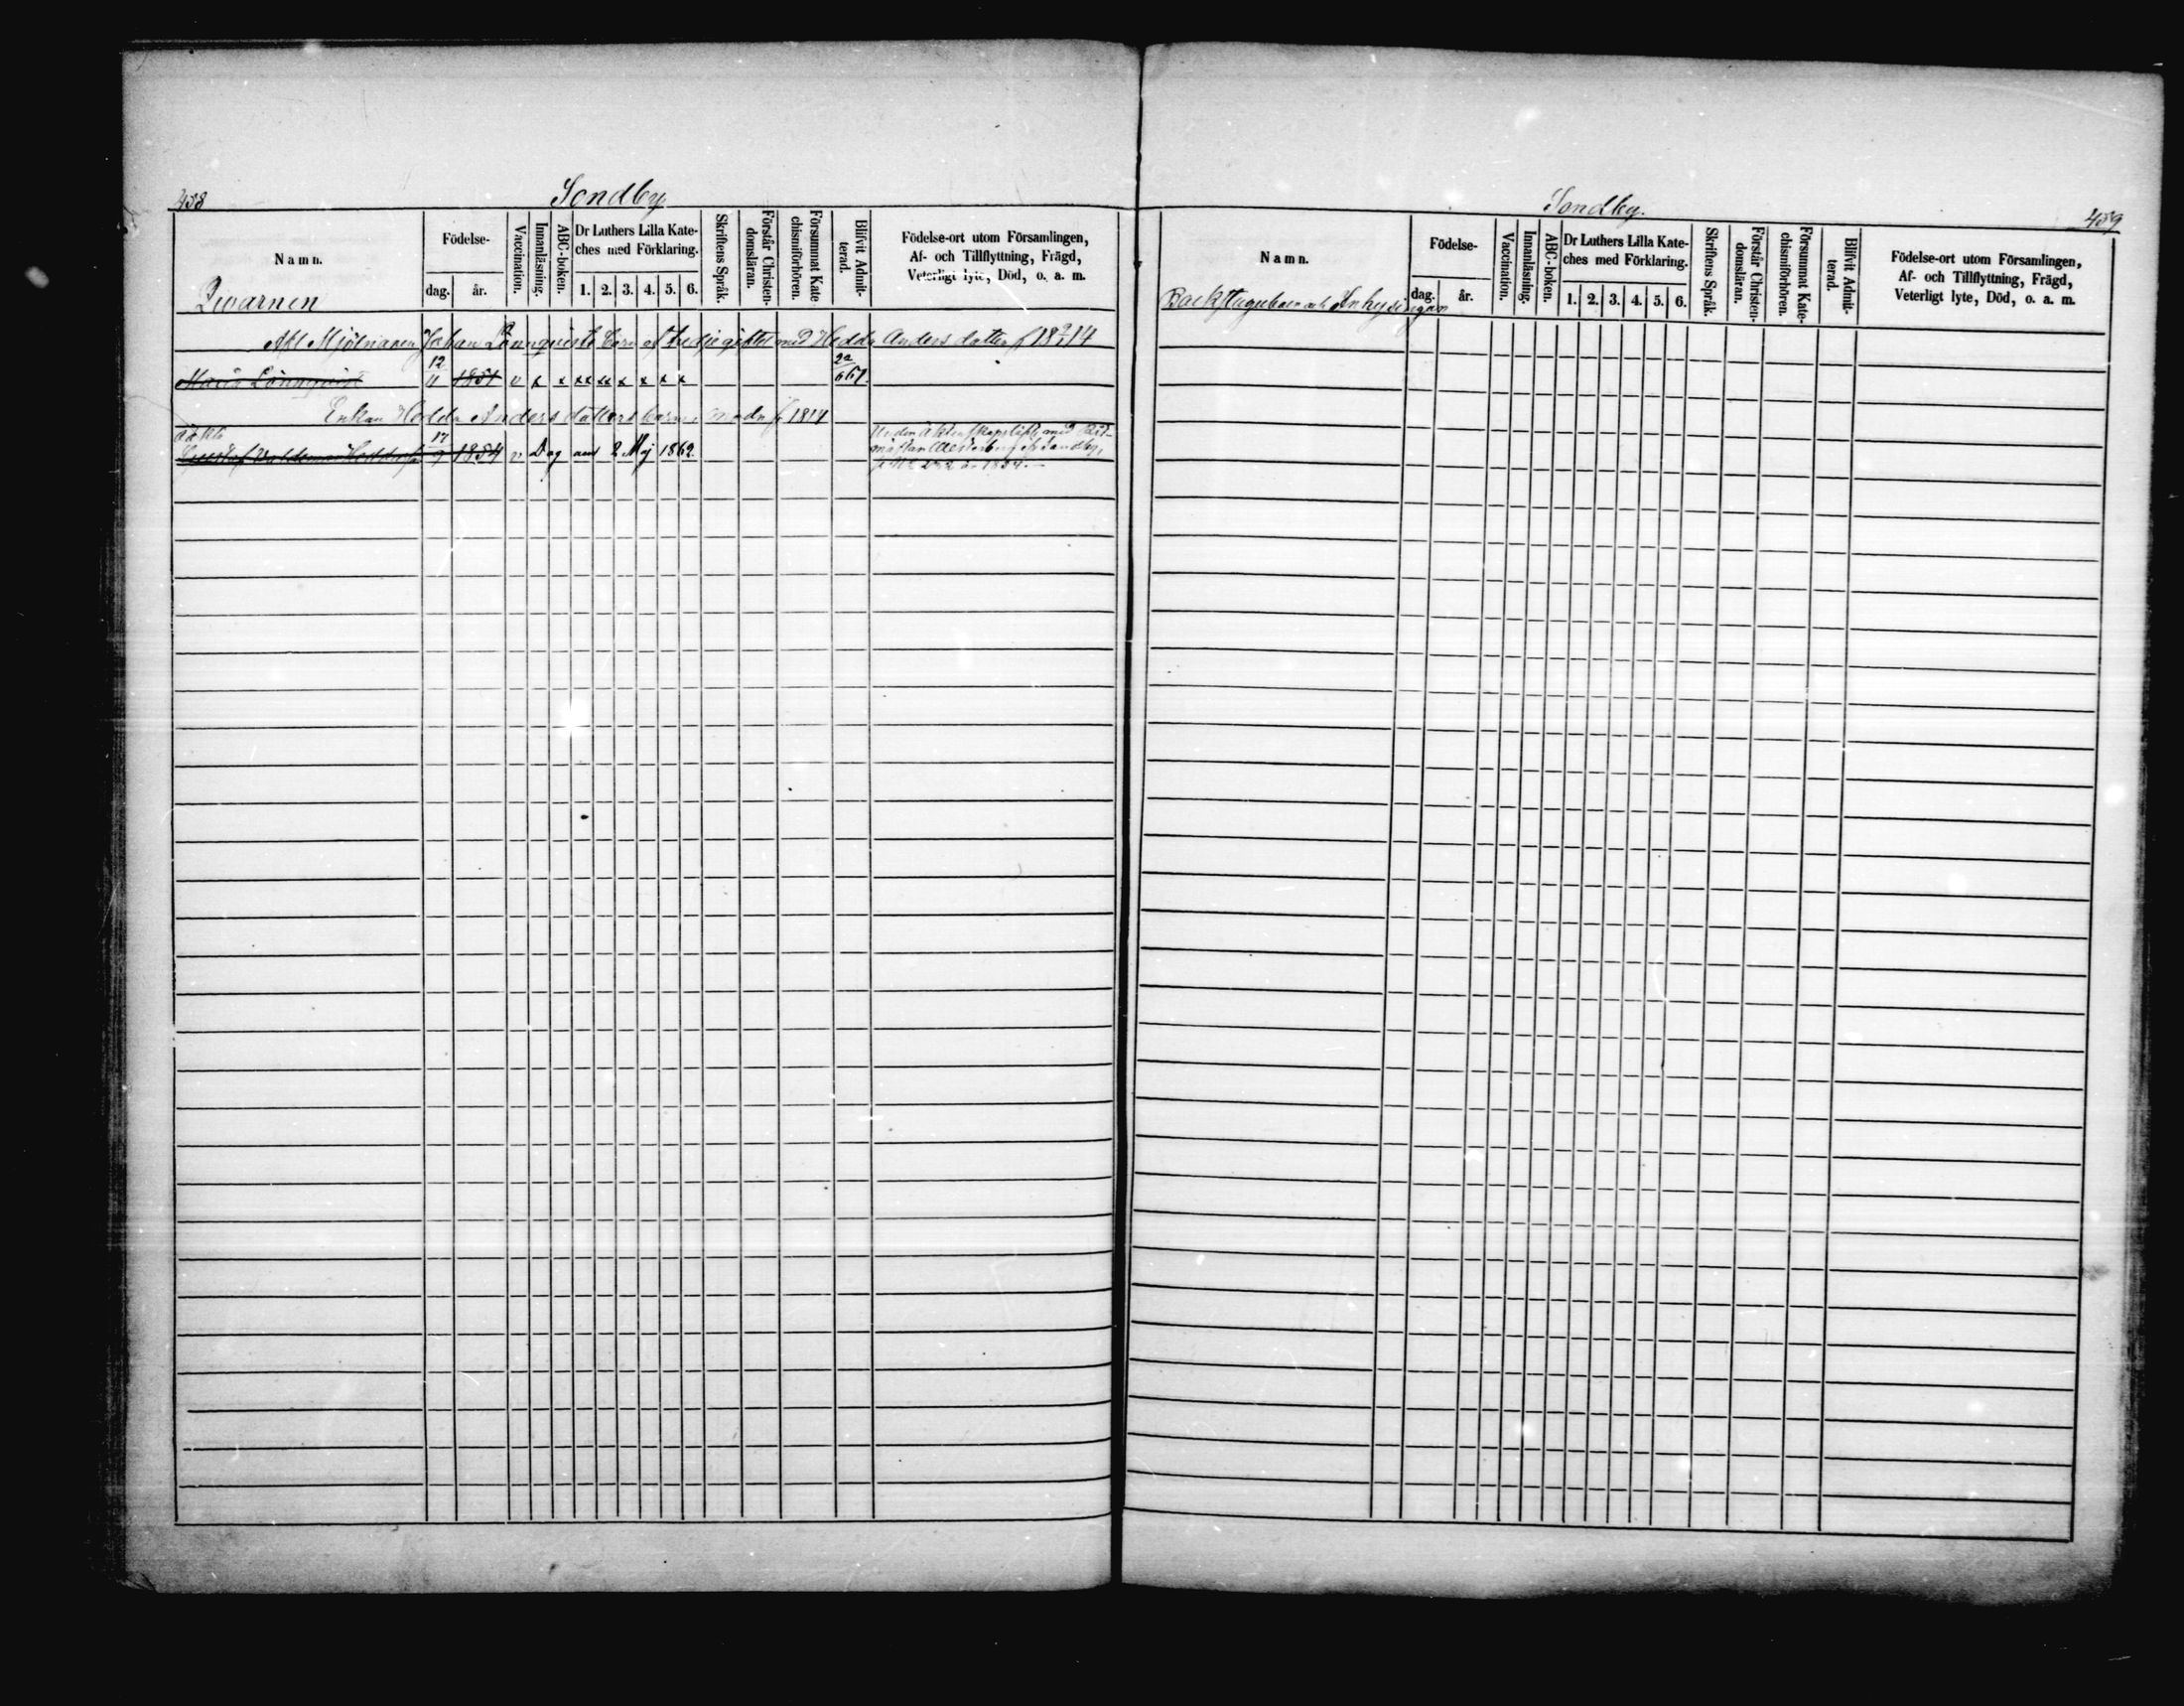 458
Sondby
Namn.
Födelse-
dag.
år.
Vaccination.
Innanläsning.
ABC-boken.
Dr Luthers Lilla Kate-
ches med Förklaring.
1. 2. 3. 4. 5. 6.
Skriftens Språk.
Förstår Christen-
domsläran.
Försummat Kate
chismiförhören.
Blifvit Admit-
terad.
Födelse-ort utom Församlingen,
Af- och Tillflyttning, Frägd,
Veterligt lyte, Död, o. a. m.
Qwarnen
Afl Mjölnaren Johan Lönnqvists Barn af tredje giftet med Hedda Andersdotter f 18 14
Maria Lönnqvist 12/11 1851 v x x xx xx x x x x
Enkan Hedda Andersdotters barn f 1814
17/9 1854 v Dog 2 Maj 1862
Sondby.
459
Namn.
Födelse-
dag.
år.
Vaccination.
Innanläsning.
ABC-boken.
Dr Luthers Lilla Kate-
ches med Förklaring.
1. 2. 3. 4. 5. 6.
Skriftens Språk.
Förstår Christen-
domsläran.
Försummat Kate-
chismiförhören.
Blifvit Admit-
terad.
Födelse-ort utom Församlingen,
Af- och Tillflyttning, Frägd,
Veterligt lyte, Död, o. a. m.
Backstuguboer och Inhysingar